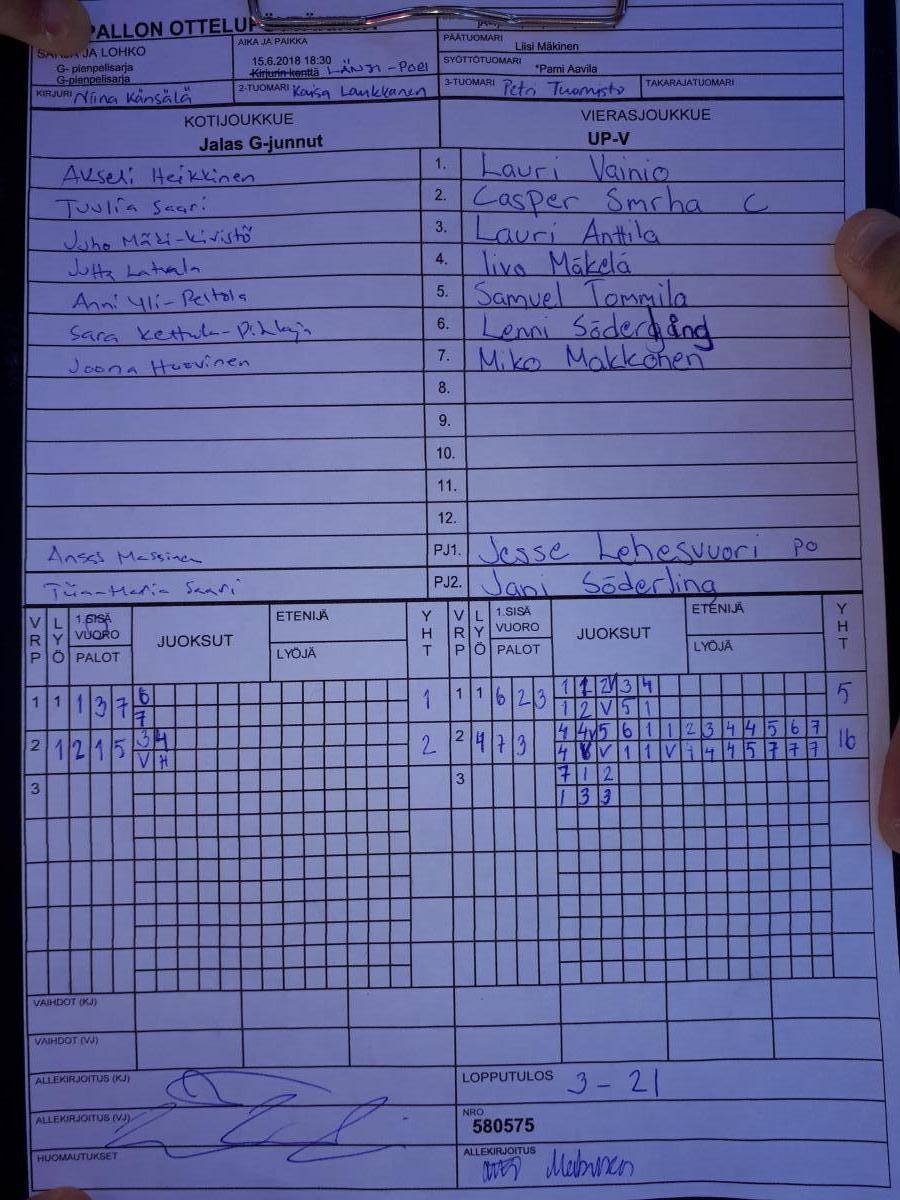 PALLON OTTELUP
SARJA JA LOHKO
G- pienpelisarja
G-pienpelisarja
AIKA JA PAIKKA
15.6.2018 18:30
Kirjurin kenttä LÄNSI-PORI
PÄÄTUOMARI
Liisi Mäkinen
SYÖTTÖTUOMARI
*Pami Aavila
KIRJURI Niina Känsälä
2-TUOMARI Kaisa Laukkanen
3-TUOMARI Petri Tuomisto
TAKARAJATUOMARI
KOTIJOUKKUE
Jalas G-junnut
VIERASJOUKKUE
UP-V
Akseli Heikkinen 1. Lauri Vainio
Tuulia Saari 2. Casper Smrha C
Juho Mäki-Kivistö 3. Lauri Anttila
Jutta Latvala 4. Iivo Mäkelä
Anni Yli-Peltola 5. Samuel Tommila
Sara Kettula-Pihlaja 6. Lenni Södergång
Joona Huovinen 7. Miko Makkonen
8.
9.
10.
11.
12.
Anssi Massinen PJ1. Jesse Lehesvuori PO
Tiia-Maria Saari PJ2. Jani Söderling
VRP LYÖ 1.SISÄ VUORO PALOT JUOKSUT ETENIJÄ LYÖJÄ YHT VRP LYÖ 1.SISÄ VUORO PALOT JUOKSUT ETENIJÄ LYÖJÄ YHT
1 1 1 3 7 6 1 1 1 6 2 3 1 1 2 3 4 5
7 1 2 V 5 1
2 1 2 1 5 3 4 2 2 4 7 3 4 4 5 6 1 1 2 3 4 4 5 6 7 16
V H 4 V 1 1 V 1 4 4 5 7 7 7
3 3 7 1 2
1 3 3
VAIHDOT (KJ)
VAIHDOT (VJ)
ALLEKIRJOITUS (KJ)
LOPPUTULOS 3 - 21
ALLEKIRJOITUS (VJ)
NRO
580575
HUOMAUTUKSET
ALLEKIRJOITUS